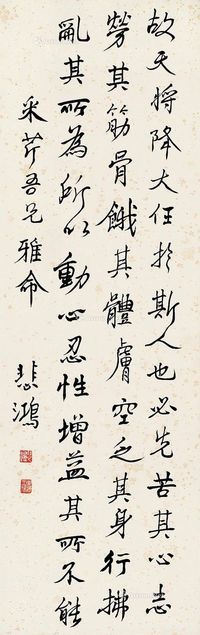 故天将降大任於斯人也必先苦其心志
勞其筋骨餓其體膚空乏其身行拂
亂其所為所以動心忍性增益其所不能
采芹吾兄雅命
悲鴻